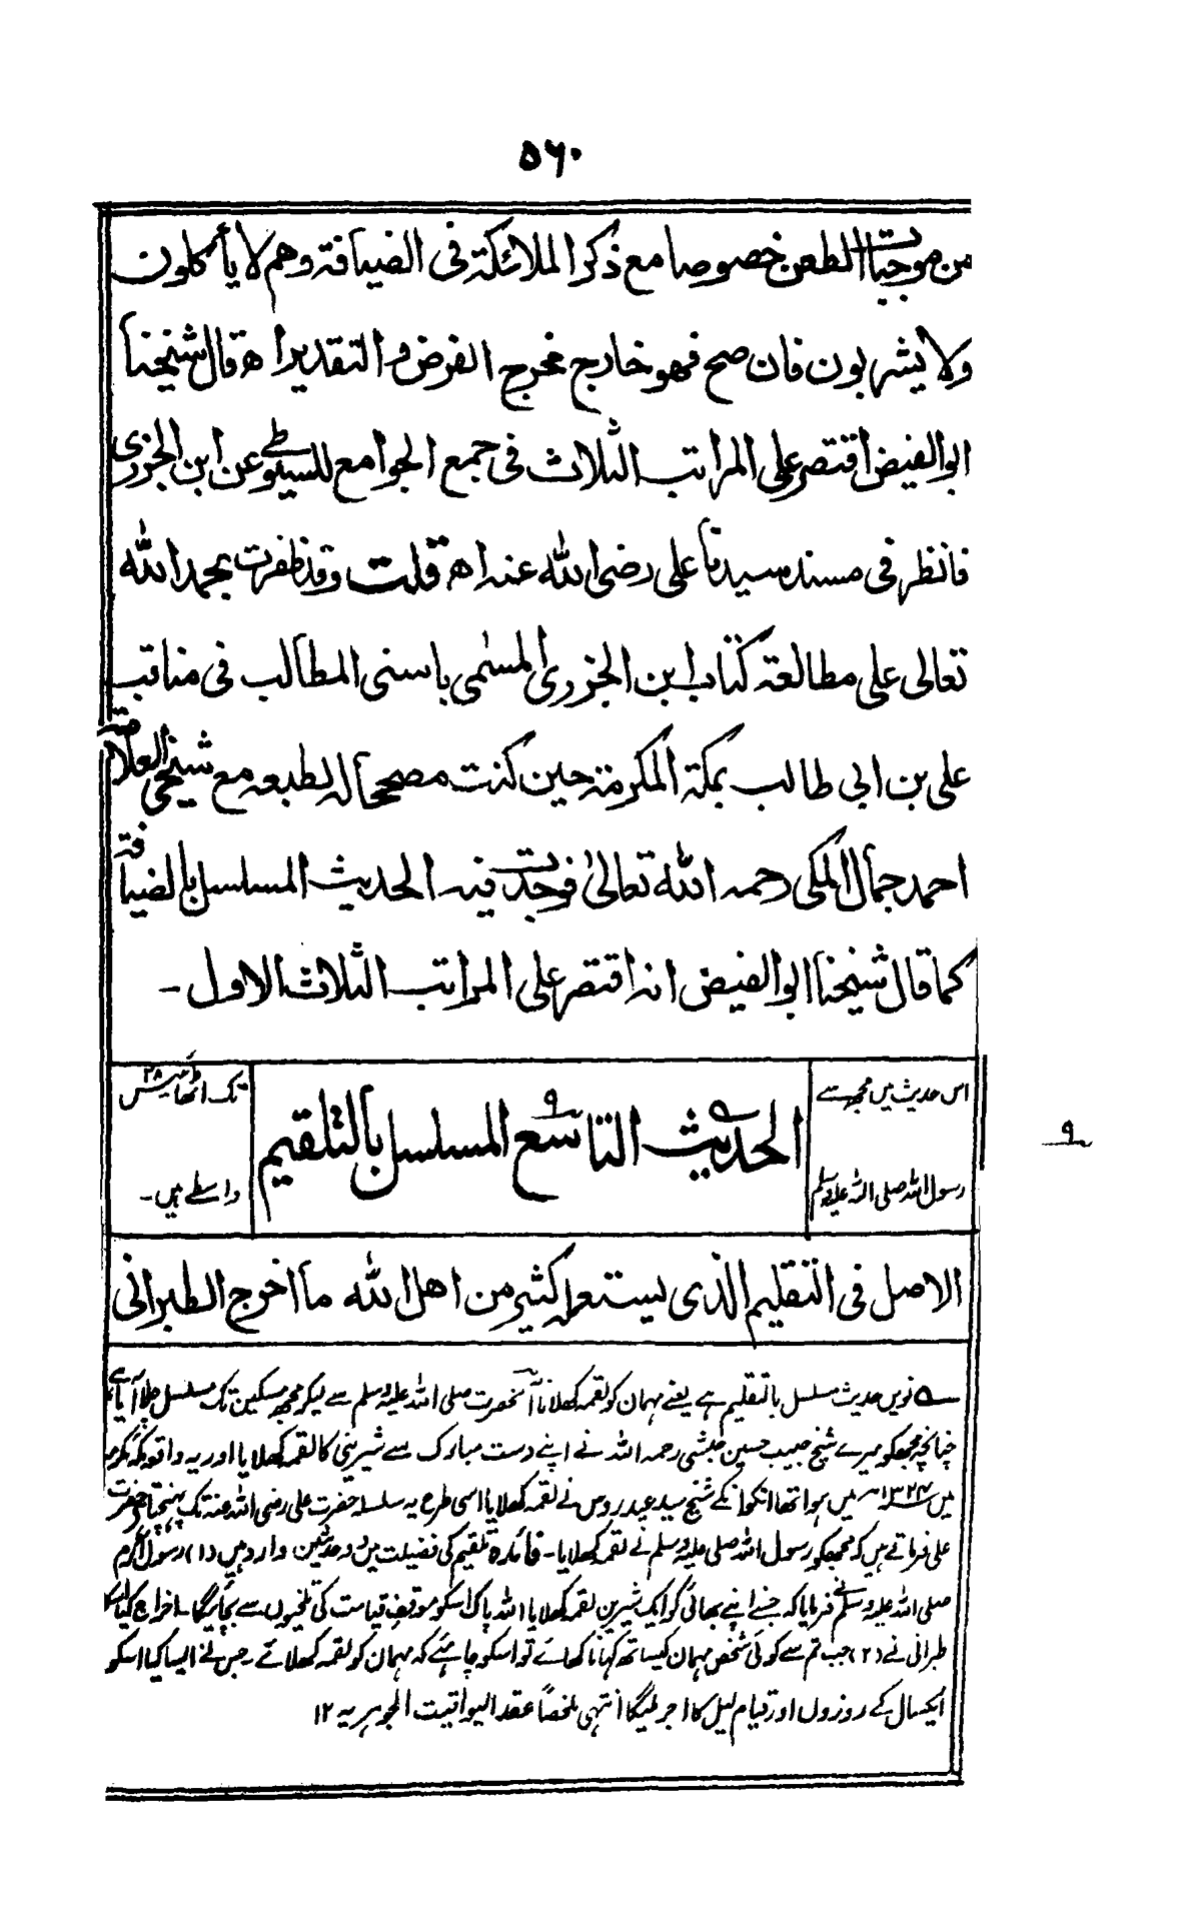 ۵۶۰
من موجبات الطعن خصوصا مع ذكر الملائكة فى الضيافة وهم لا يأكلون
ولا يشربون فان صح فهو خارج مخرج الفرض والتقدير اھ قال شيخنا
ابو الفيض اقتصر على المراتب الثلاث فى جمع الجوامع للسيوطى عن ابن الجزرى
فانظر فى مسند سيدنا على رضى الله عنه اھ قلت وقد ظفرت بحمد الله
تعالى على مطالعة كتاب ابن الجزرى المسمى باسنى المطالب فى مناقب
على بن ابى طالب بمكة المكرمة حين كنت مصححا له لطبعه مع شيخى العلامة
احمد جمال المكى رحمه الله تعالىٰ فوجدت فيه الحديث المسلسل بالضيافة
كما قال شيخنا ابو الفيض انه اقتصر على المراتب الثلاث الاول -
اس حدیث میں مجھ سے
رسول اللہ صلی اللہ علیہ وسلم
الحديث التاسع ۹ المسلسل بالتلقيم
تک اٹھائیس ۲۸
واسطے ہیں -
۹
الاصل فى التقليم الذى يستعمله كثير من اهل الله ما اخرج الطبرانى
نویں حدیث مسلسل بالتقلیم ہے یعنے مہمان کو لقمہ کھلانا آنحضرت صلی اللہ علیہ وسلم سے لیکر مجھ مسکین تک مسلسل چلا آیا ہے
چنانچہ مجھکو میرے شیخ حبیب حسین حبشی رحمہ اللہ نے اپنے دست مبارک سے شیرینی کا لقمہ کھلایا اور یہ واقعہ مکہ مکرمہ
میں ۱۳۲۴ھ میں ہوا تھا انکو انکے شیخ سید عیدروس نے لقمہ کھلایا اسی طرح یہ سلسلہ حضرت علی رضی اللہ عنہ تک پہنچتا حضرت
علی فرماتے ہیں کہ مجھکو رسول اللہ صلی علیہ وسلم نے لقمہ کھلایا - فائدہ تلقیم کی فضیلت میں دو حدیثیں وارد ہیں (۱) رسول اکرم
صلی اللہ علیہ وسلم نے فرمایا کہ جسنے اپنے بھائی کو ایک شیرین لقمہ کھلایا اللہ پاک اسکو موقف قیامت کی تلخیوں سے بچائیگا - اخراج کیا اسکا
طبرانی نے (۲) جب تم سے کوئی شخص مہمان کیساتھ کہانا کھائے تو اسکو چاہئے کہ مہمان کو لقمہ کھلائے جس نے ایسا کیا اسکو
ایکسال کے روزوں اور قیام لیل کا اجر ملیگا انتہی ملخصاً عقد الیواقیت الجوہریہ ۱۲